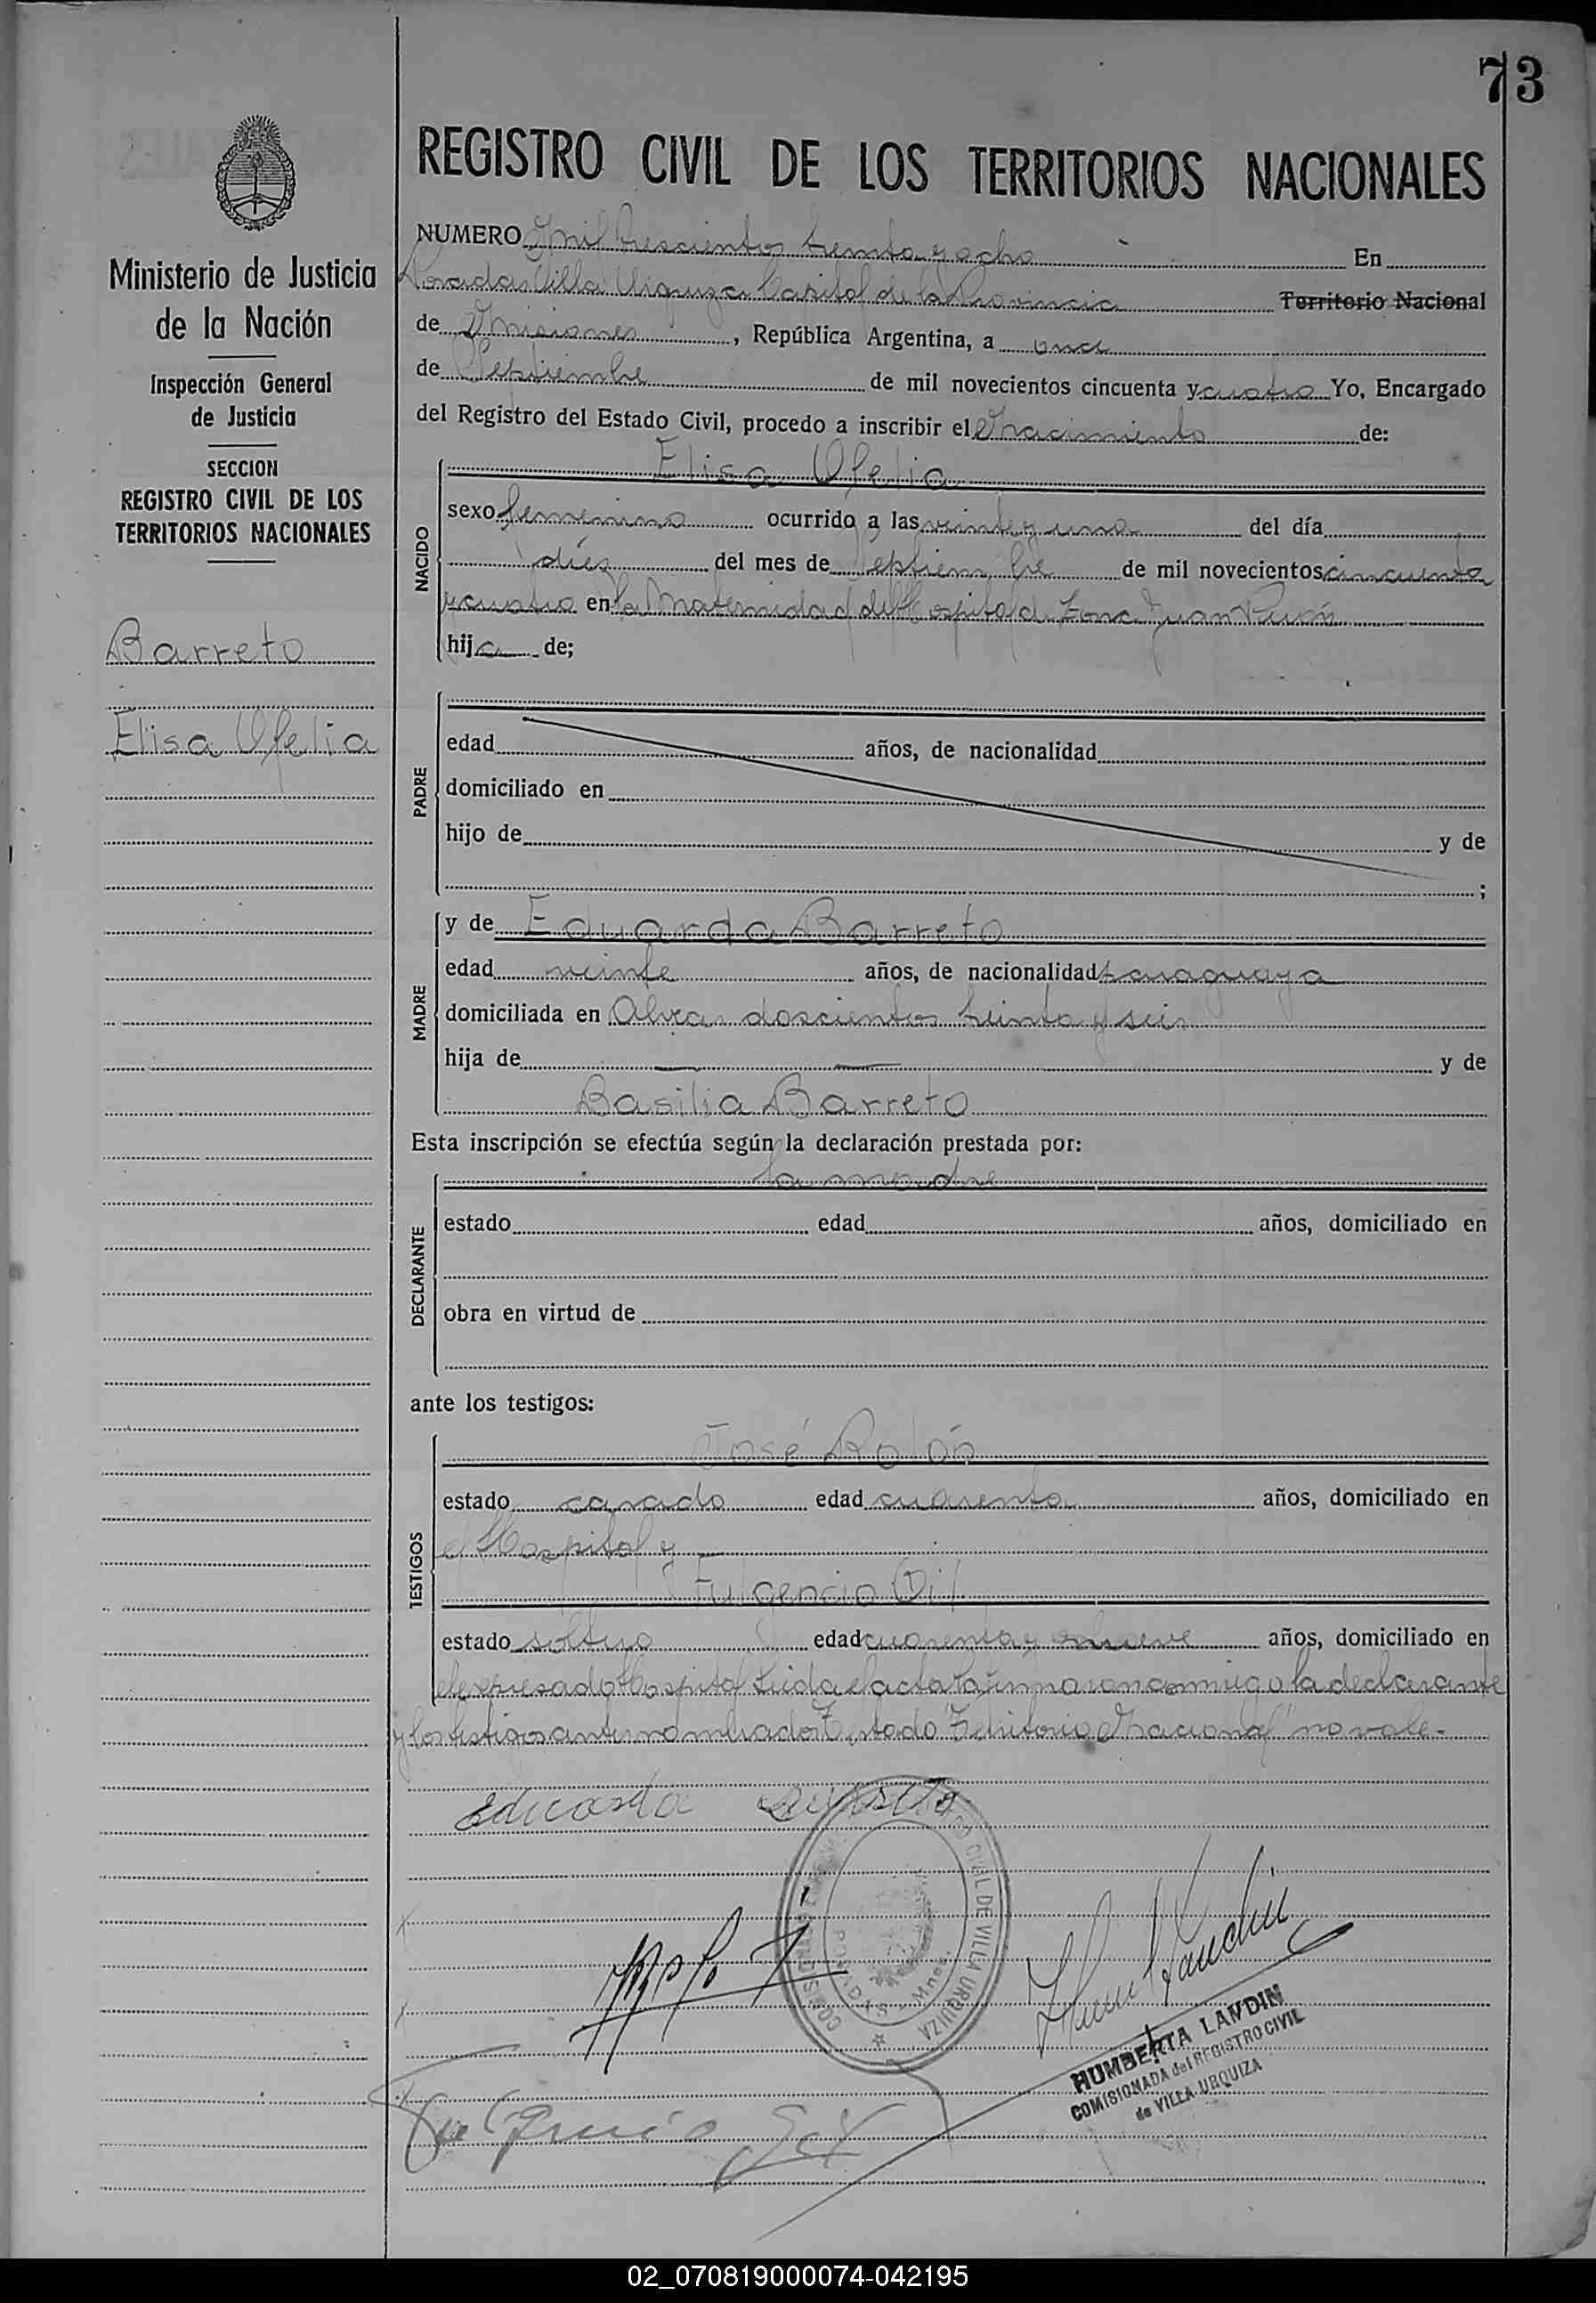 73
REGISTRO CIVIL DE LOS TERRITORIOS NACIONALES
Ministerio de Justicia
de la Nación
Inspección General
de Justicia
SECCION
REGISTRO CIVIL DE LOS
TERRITORIOS NACIONALES
Barreto
Elisa Ofelia
NUMERO mil trescientos treinta y ocho En
Posadas Villa Urquiza Capital de la Provincia Territorio Nacional
de Misiones, República Argentina, a once
de Septiembre de mil novecientos cincuenta y cuatro Yo, Encargado
del Registro del Estado Civil, procedo a inscribir el Nacimiento de:
NACIDO
Elisa Ofelia
sexo femenino ocurrido a las veinte y una del día
diez del mes de Septiembre de mil novecientos cincuenta
y cuatro en la Maternidad del Hospital de Zona Juan Perón
hija de;
PADRE
edad años, de nacionalidad
domiciliado en
hijo de y de
;
MADRE
y de Eduarda Barreto
edad veinte años, de nacionalidad paraguaya
domiciliada en doscientos treinta y seis
hija de — — y de
Basilia Barreto
Esta inscripción se efectúa según la declaración prestada por:
DECLARANTE
la madre
estado edad años, domiciliado en
obra en virtud de
ante los testigos:
TESTIGOS
José Rolón
estado casado edad cuarenta años, domiciliado en
el Hospital y
Fulgencio
estado soltero edad cuarenta y nueve años, domiciliado en
el expresado Hospital Leida el acta la firmaron conmigo la declarante
y los testigos antes nombrados Testado "Territorio Nacional" no vale.
Eduarda Barreto
CIVIL DE VILLA URQUIZA
POSADAS - Mnes.
HUMBERTA LANDIN
COMISIONADA del REGISTRO CIVIL
de VILLA URQUIZA
Fulgencio
02_070819000074-042195